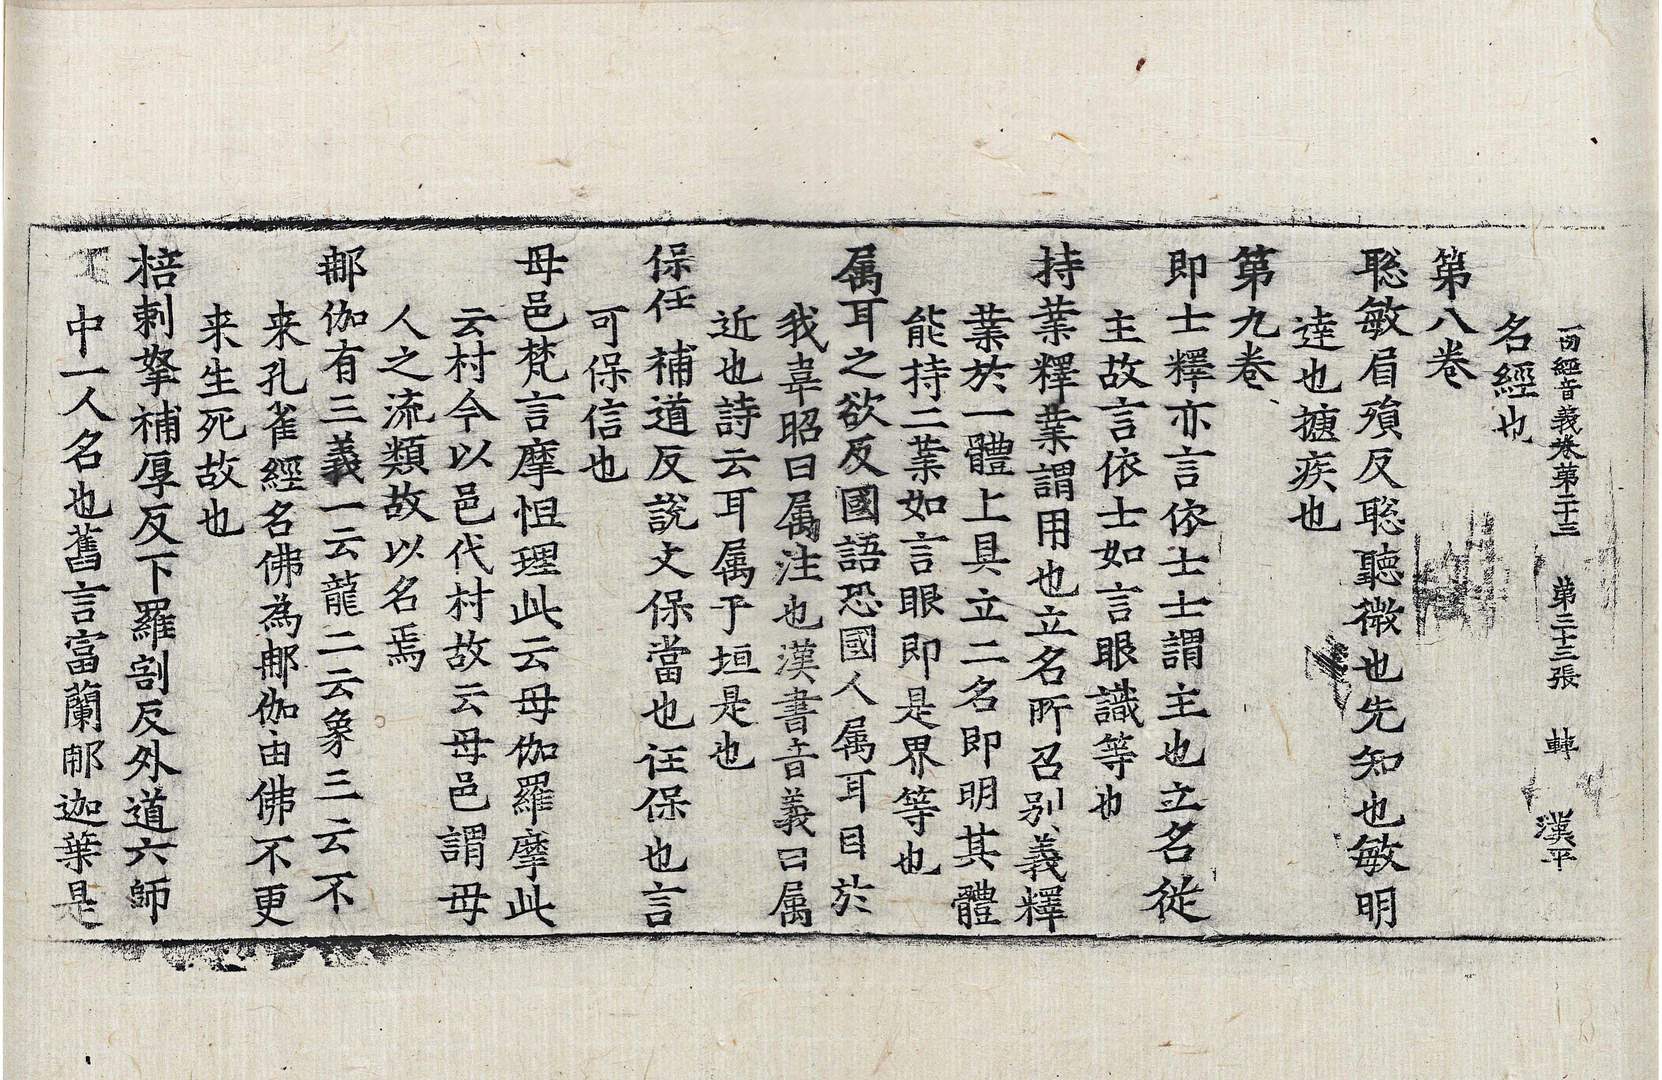 一切經音義卷第二十三 第三十三張 轉 漢平
名經也
第八卷
聡敏眉殞反聡聽微也先知也敏明
逹也㨗疾也
第九卷
即士釋亦言依士士謂主也立名從
主故言依士如言眼識等也
持業釋業謂用也立名所召別義釋
業於一體上具立二名即明其體
能持二業如言眼即是界等也
属耳之欲反國語恐國人属耳目於
我韋昭曰属注也漢書音義曰属
近也詩云耳属于垣是也
保任補道反說文保當也任保也言
可保信也
母邑梵言摩怛理此云母伽羅摩此
云村今以邑代村故云母邑謂母
人之流類故以名焉
䣸伽有三義一云龍二云象三云不
来孔雀經名佛為䣸伽由佛不更
来生死故也
棓剌拏補厚反下羅割反外道六師
中一人名也舊言富蘭䣸迦葉是